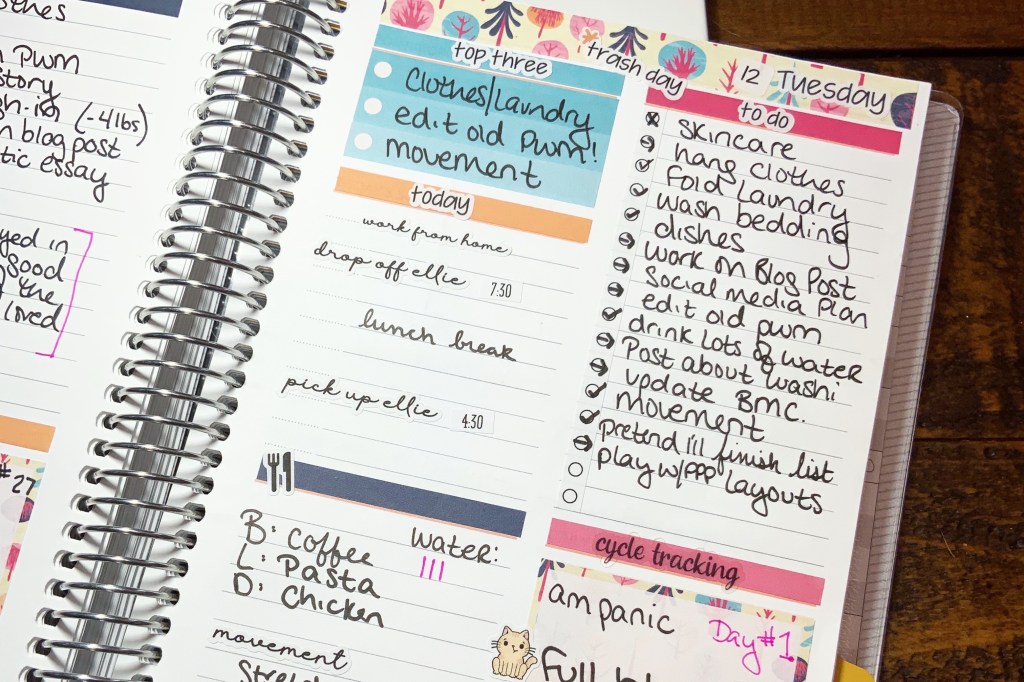 Pwm
story
(-4lbs)
blog post
essay
good
the
loved
#27
top three
Clothes/Laundry
edit old Pwm!
movement
today
work from home
drop off ellie 7:30
lunch break
pick up ellie 4:30
B: Coffee
L: Pasta
D: Chicken
Water:
III
movement
trash day
12 Tuesday
to do
Skincare
hang clothes
fold Laundry
wash bedding
dishes
Work on Blog Post
Social Media Plan
edit old pwm
drink lots of water
Post about washi
update BMC.
movement
pretend I'll finish list
play w/PPP Layouts
cycle tracking
am panic
Day #1
Full